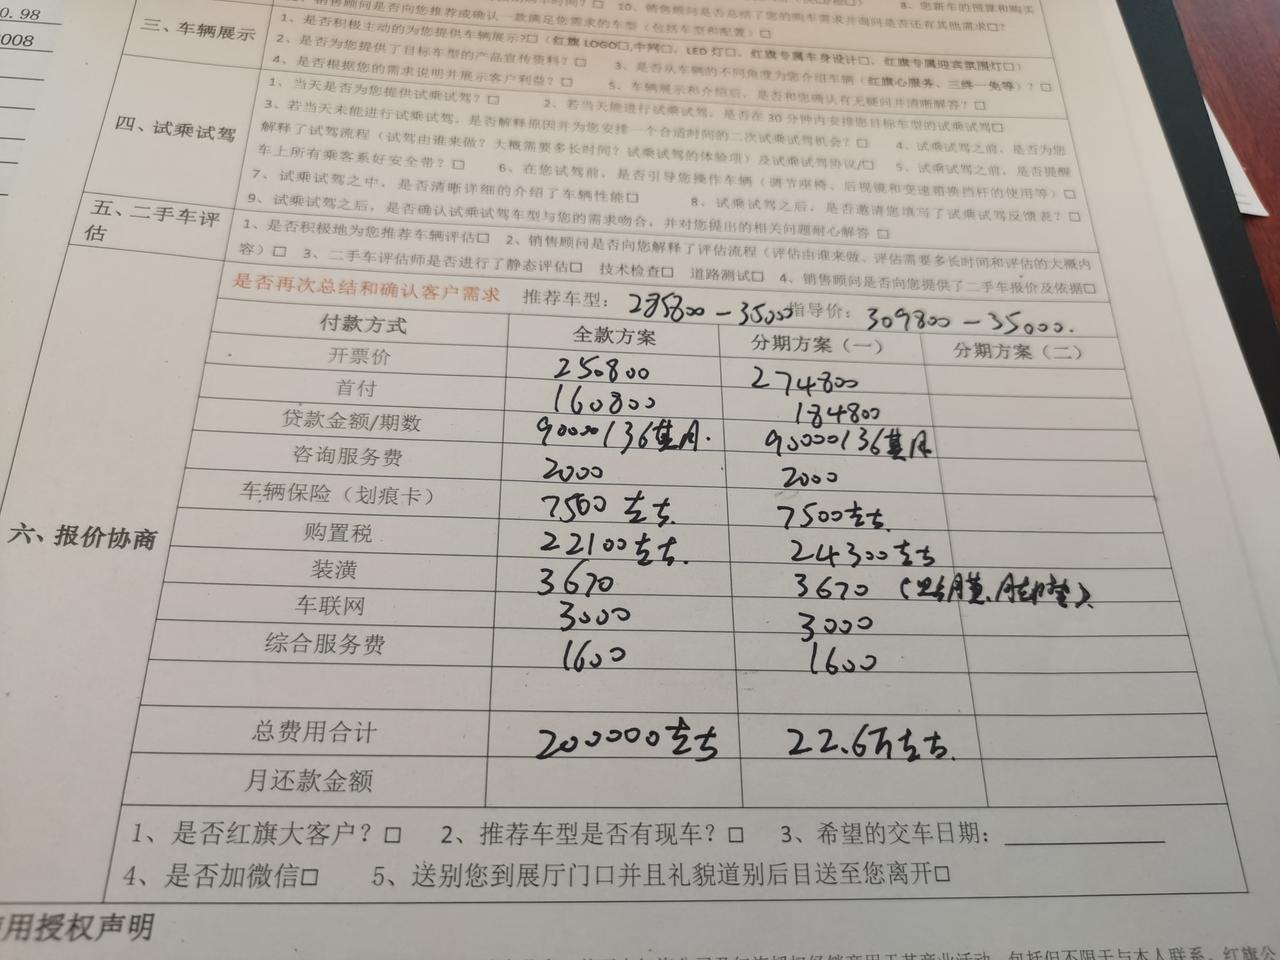 0.98
008
三、车辆展示
1、是否积极主动的为您提供车辆展示?□(红旗 LOGO□,中网□、LED 灯□、红旗专属车身设计□、红旗专属迎宾氛围灯□)
2、是否为您提供了目标车型的产品宣传资料?□ 3、是否从车辆的不同角度为您介绍车辆(红旗心服务、三终一免等)?□
4、是否根据您的需求说明并展示客户利益?□ 5、车辆展示和介绍后,是否和您确认有无疑问并清晰解答?□
四、试乘试驾
1、当天是否为您提供试乘试驾?□ 2、若当天能进行试乘试驾,是否在 30 分钟内安排您目标车型的试乘试驾□
3、若当天未能进行试乘试驾,是否解释原因并为您安排一个合适时间的二次试乘试驾机会?□ 4、试乘试驾之前,是否为您
解释了试驾流程(试驾由谁来做?大概需要多长时间?试乘试驾的体验项)及试乘试驾协议/□ 5、试乘试驾之前,是否提醒
车上所有乘客系好安全带?□ 6、在您试驾前,是否引导您操作车辆(调节座椅、后视镜和变速箱换挡杆的使用等)□
7、试乘试驾之中,是否清晰详细的介绍了车辆性能□ 8、试乘试驾之后,是否邀请您填写了试乘试驾反馈表?□
9、试乘试驾之后,是否确认试乘试驾车型与您的需求吻合,并对您提出的相关问题耐心解答 □
五、二手车评估
1、是否积极地为您推荐车辆评估□ 2、销售顾问是否向您解释了评估流程(评估由谁来做、评估需要多长时间和评估的大概内
容)□ 3、二手车评估师是否进行了静态评估□ 技术检查□ 道路测试□ 4、销售顾问是否向您提供了二手车报价及依据□
是否再次总结和确认客户需求 推荐车型: 285800-35000 指导价: 309800-35000.
六、报价协商
付款方式 全款方案 分期方案(一) 分期方案(二)
开票价 250800 274800
首付 160800 184800
贷款金额/期数 90000/36其月. 90000/36其月
咨询服务费 2000 2000
车辆保险(划痕卡) 7500左右. 7500左右.
购置税 22100左右. 24300左右
装潢 3670 3670 (贴膜、脚垫)、
车联网 3000 3000
综合服务费 1600 1600
总费用合计 200000左右 22.6万左右.
月还款金额
1、是否红旗大客户?□ 2、推荐车型是否有现车?□ 3、希望的交车日期:
4、是否加微信□ 5、送别您到展厅门口并且礼貌道别后目送至您离开□
用授权声明